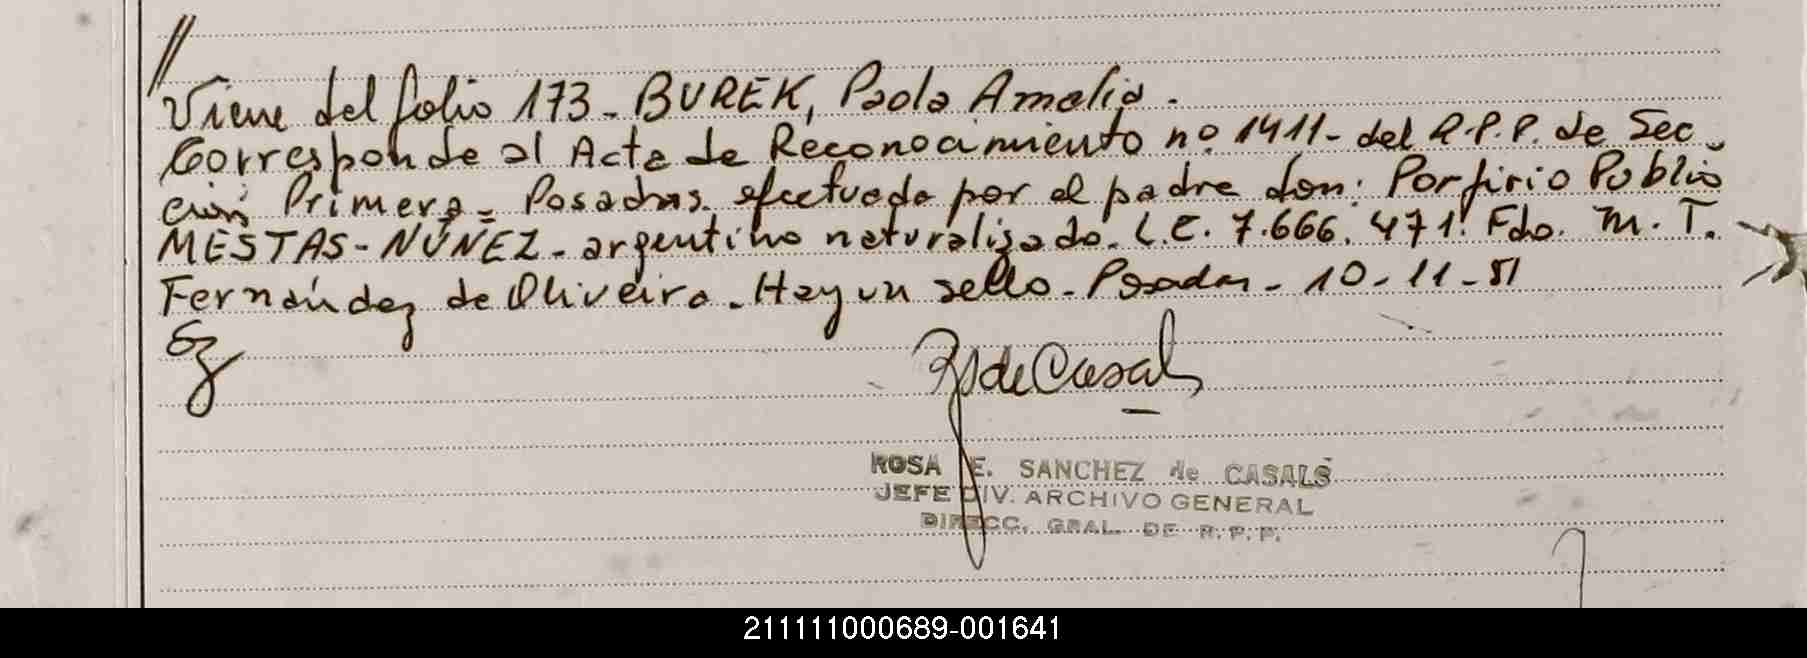 //
Viene del folio 173 - BUREK, Paola Amalia.
Corresponde al Acta de Reconocimiento nº 1411 - del R.P.P. de Sec-
ción Primera - Posadas. efectuado por el padre don: Porfirio Publio
MESTAS - NÚÑEZ - argentino naturalizado. L.E. 7.666.471. Fdo. M. T.
Fernández de Oliveira. Hay un sello - Posadas - 10 - 11 - 81
RS de Casals
ROSA E. SANCHEZ de CASALS
JEFE DIV. ARCHIVO GENERAL
DIRECC. GRAL. DE R.P.P.
211111000689-001641